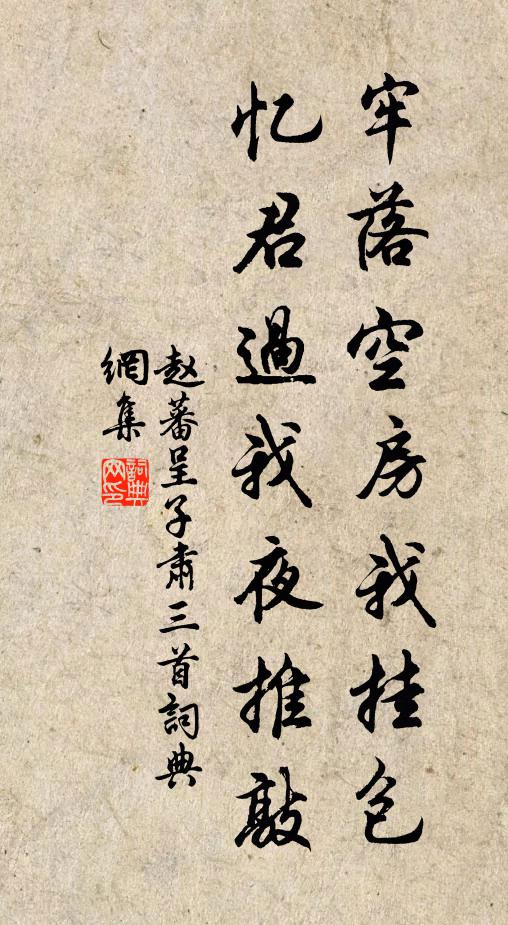 牢落空房我挂包
忆君過我夜推敲
赵蕃呈子肅三首詞典
網集
詞典网印